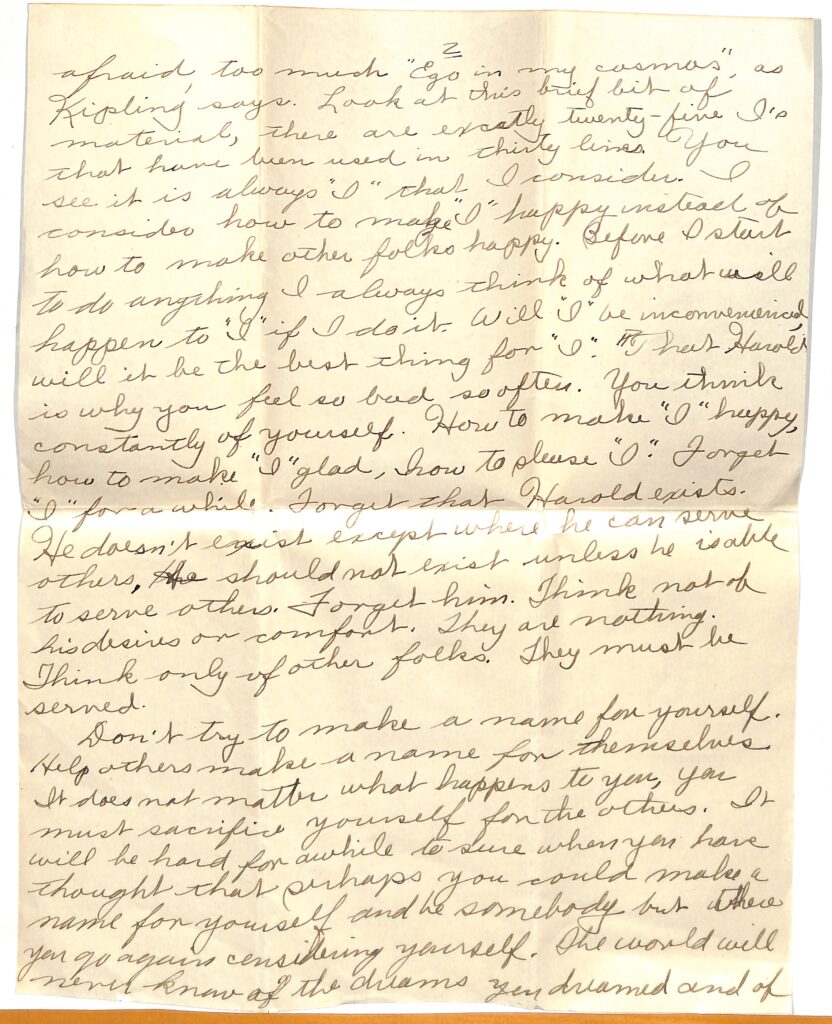 2
afraid, too much "Ego in my cosmos", as
Kipling says. Look at this brief bit of
material, there are excatly twenty-five I's
that have been used in thirty lines. You
see it is always "I" that I consider. I
consider how to make "I" happy instead of
how to make other folks happy. Before I start
to do anything I always think of what will
happen to "I" if I do it. Will "I" be inconvenienced,
will it be the best thing for "I". That Harold
is why you feel so bad so often. You think
constantly of yourself. How to make "I" happy,
how to make "I" glad, how to please "I". Forget
"I" for a while. Forget that Harold exists.
He doesn't exist except where he can serve
others, he should not exist unless he is able
to serve others. Forget him. Think not of
his desires or comfort. They are nothing.
Think only of other folks. They must be
served.
Don't try to make a name for yourself.
Help others make a name for themselves
It does not matter what happens to you, you
must sacrifice yourself for the others. It
will be hard for awhile to sure when you have
thought that perhaps you could make a
name for yourself and be somebody but there
you go again considering yourself. The world will
never know of the dreams you dreamed and of